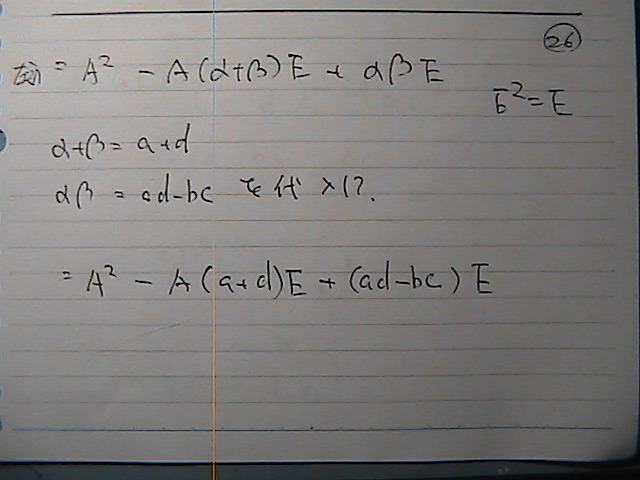 26
左辺 = A² - A(α+β)E + αβE
E² = E
α+β = a+d
αβ = ad-bc を代入して.
= A² - A(a+d)E + (ad-bc)E